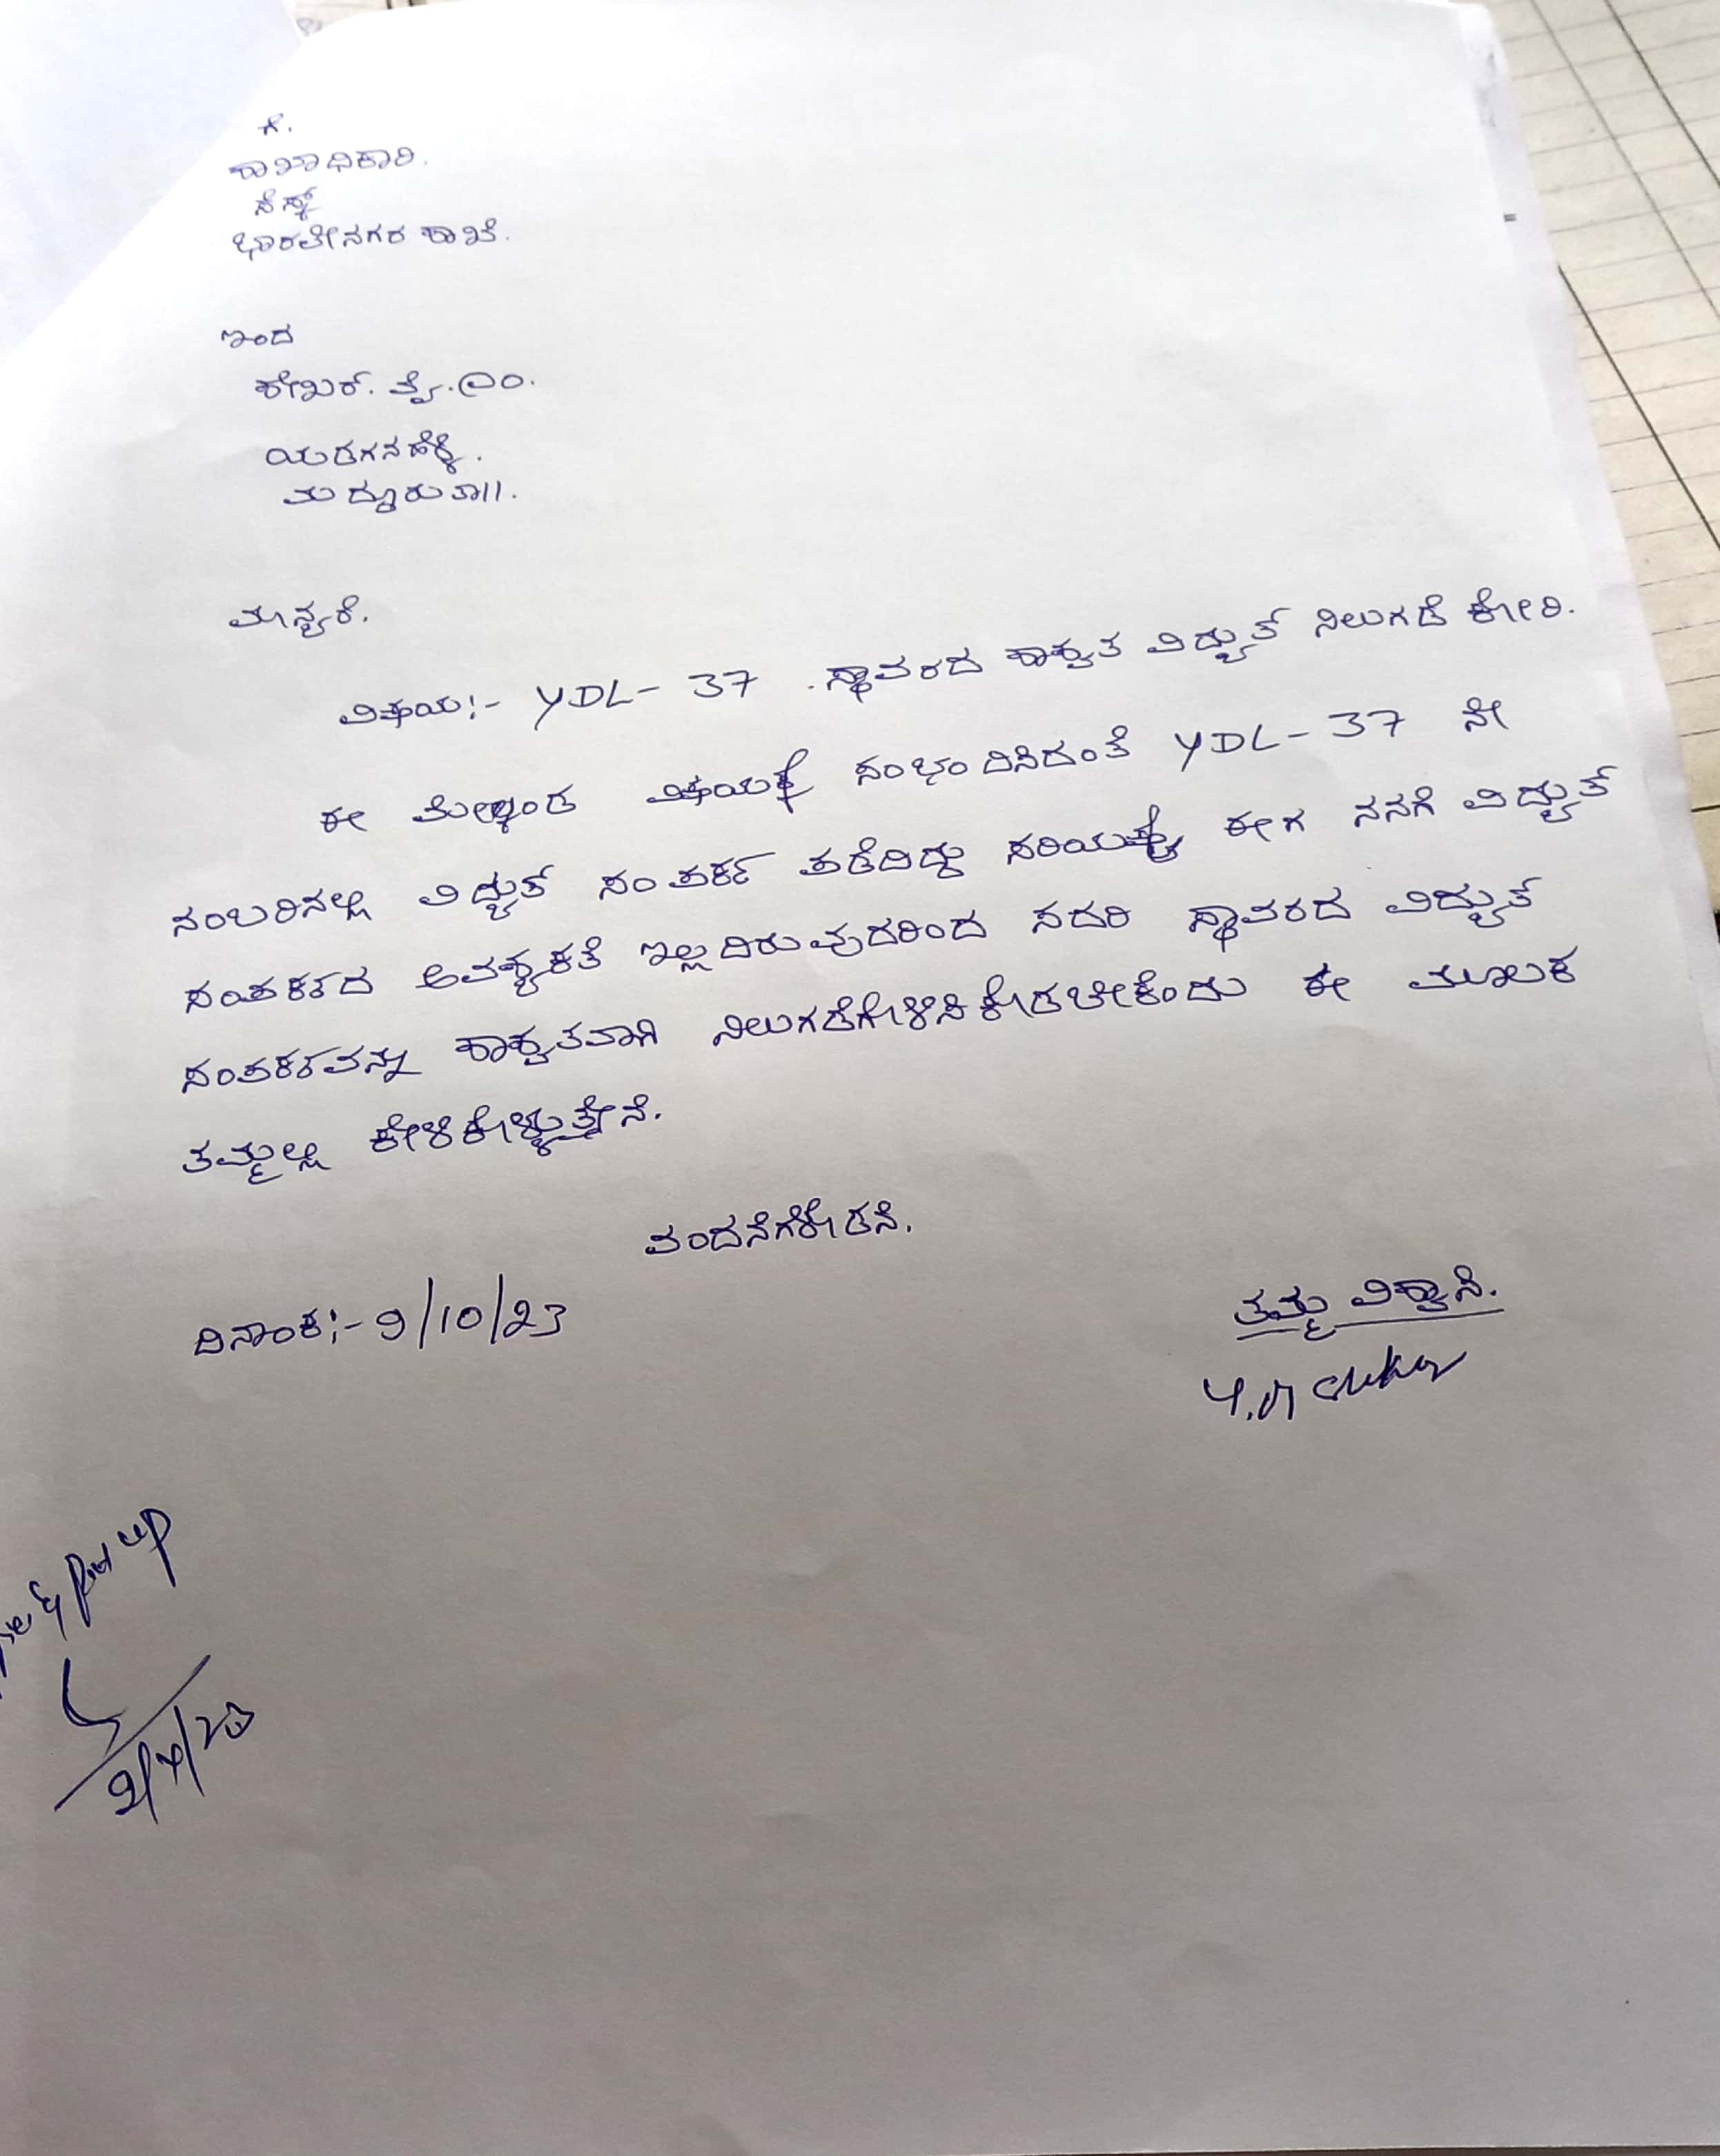 ಗೆ.
ಶಾಖಾಧಿಕಾರಿ.
ಸೆಸ್ಕ್
ಭಾರತೀನಗರ ಶಾಖೆ.
ಇಂದ
ಶೇಖರ್. ವೈ.ಎಂ.
ಯಡಗನಹಳ್ಳಿ.
ಮದ್ದೂರು ತಾ||.
ಮಾನ್ಯರೆ.
ವಿಷಯ:- YDL-37 .ಸ್ಥಾವರದ ಶಾಶ್ವತ ವಿದ್ಯುತ್ ನಿಲುಗಡೆ ಕೋರಿ.
ಈ ಮೇಲ್ಕಂಡ ವಿಷಯಕ್ಕೆ ಸಂಭಂದಿಸಿದಂತೆ YDL-37 ನೇ
ನಂಬರಿನಲ್ಲಿ ವಿದ್ಯುತ್ ಸಂಪರ್ಕ ಪಡೆದಿದ್ದು ಸರಿಯಷ್ಟೆ ಈಗ ನನಗೆ ವಿದ್ಯುತ್
ಸಂಪರ್ಕದ ಅವಶ್ಯಕತೆ ಇಲ್ಲದಿರುವುದರಿಂದ ಸದರಿ ಸ್ಥಾವರದ ವಿದ್ಯುತ್
ಸಂಪರ್ಕವನ್ನು ಶಾಶ್ವತವಾಗಿ ನಿಲುಗಡೆಗೊಳಿಸಿಕೊಡಬೇಕೆಂದು ಈ ಮೂಲಕ
ತಮ್ಮಲ್ಲಿ ಕೇಳಿಕೊಳ್ಳುತ್ತೇನೆ.
ವಂದನೆಗಳೊಡನೆ.
ದಿನಾಂಕ:- 9/10/23
ತಮ್ಮ ವಿಶ್ವಾಸಿ.
Y.M
& put up